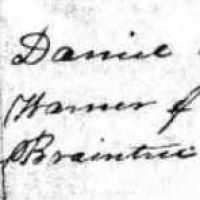 Daniel
Warner of
Braintree